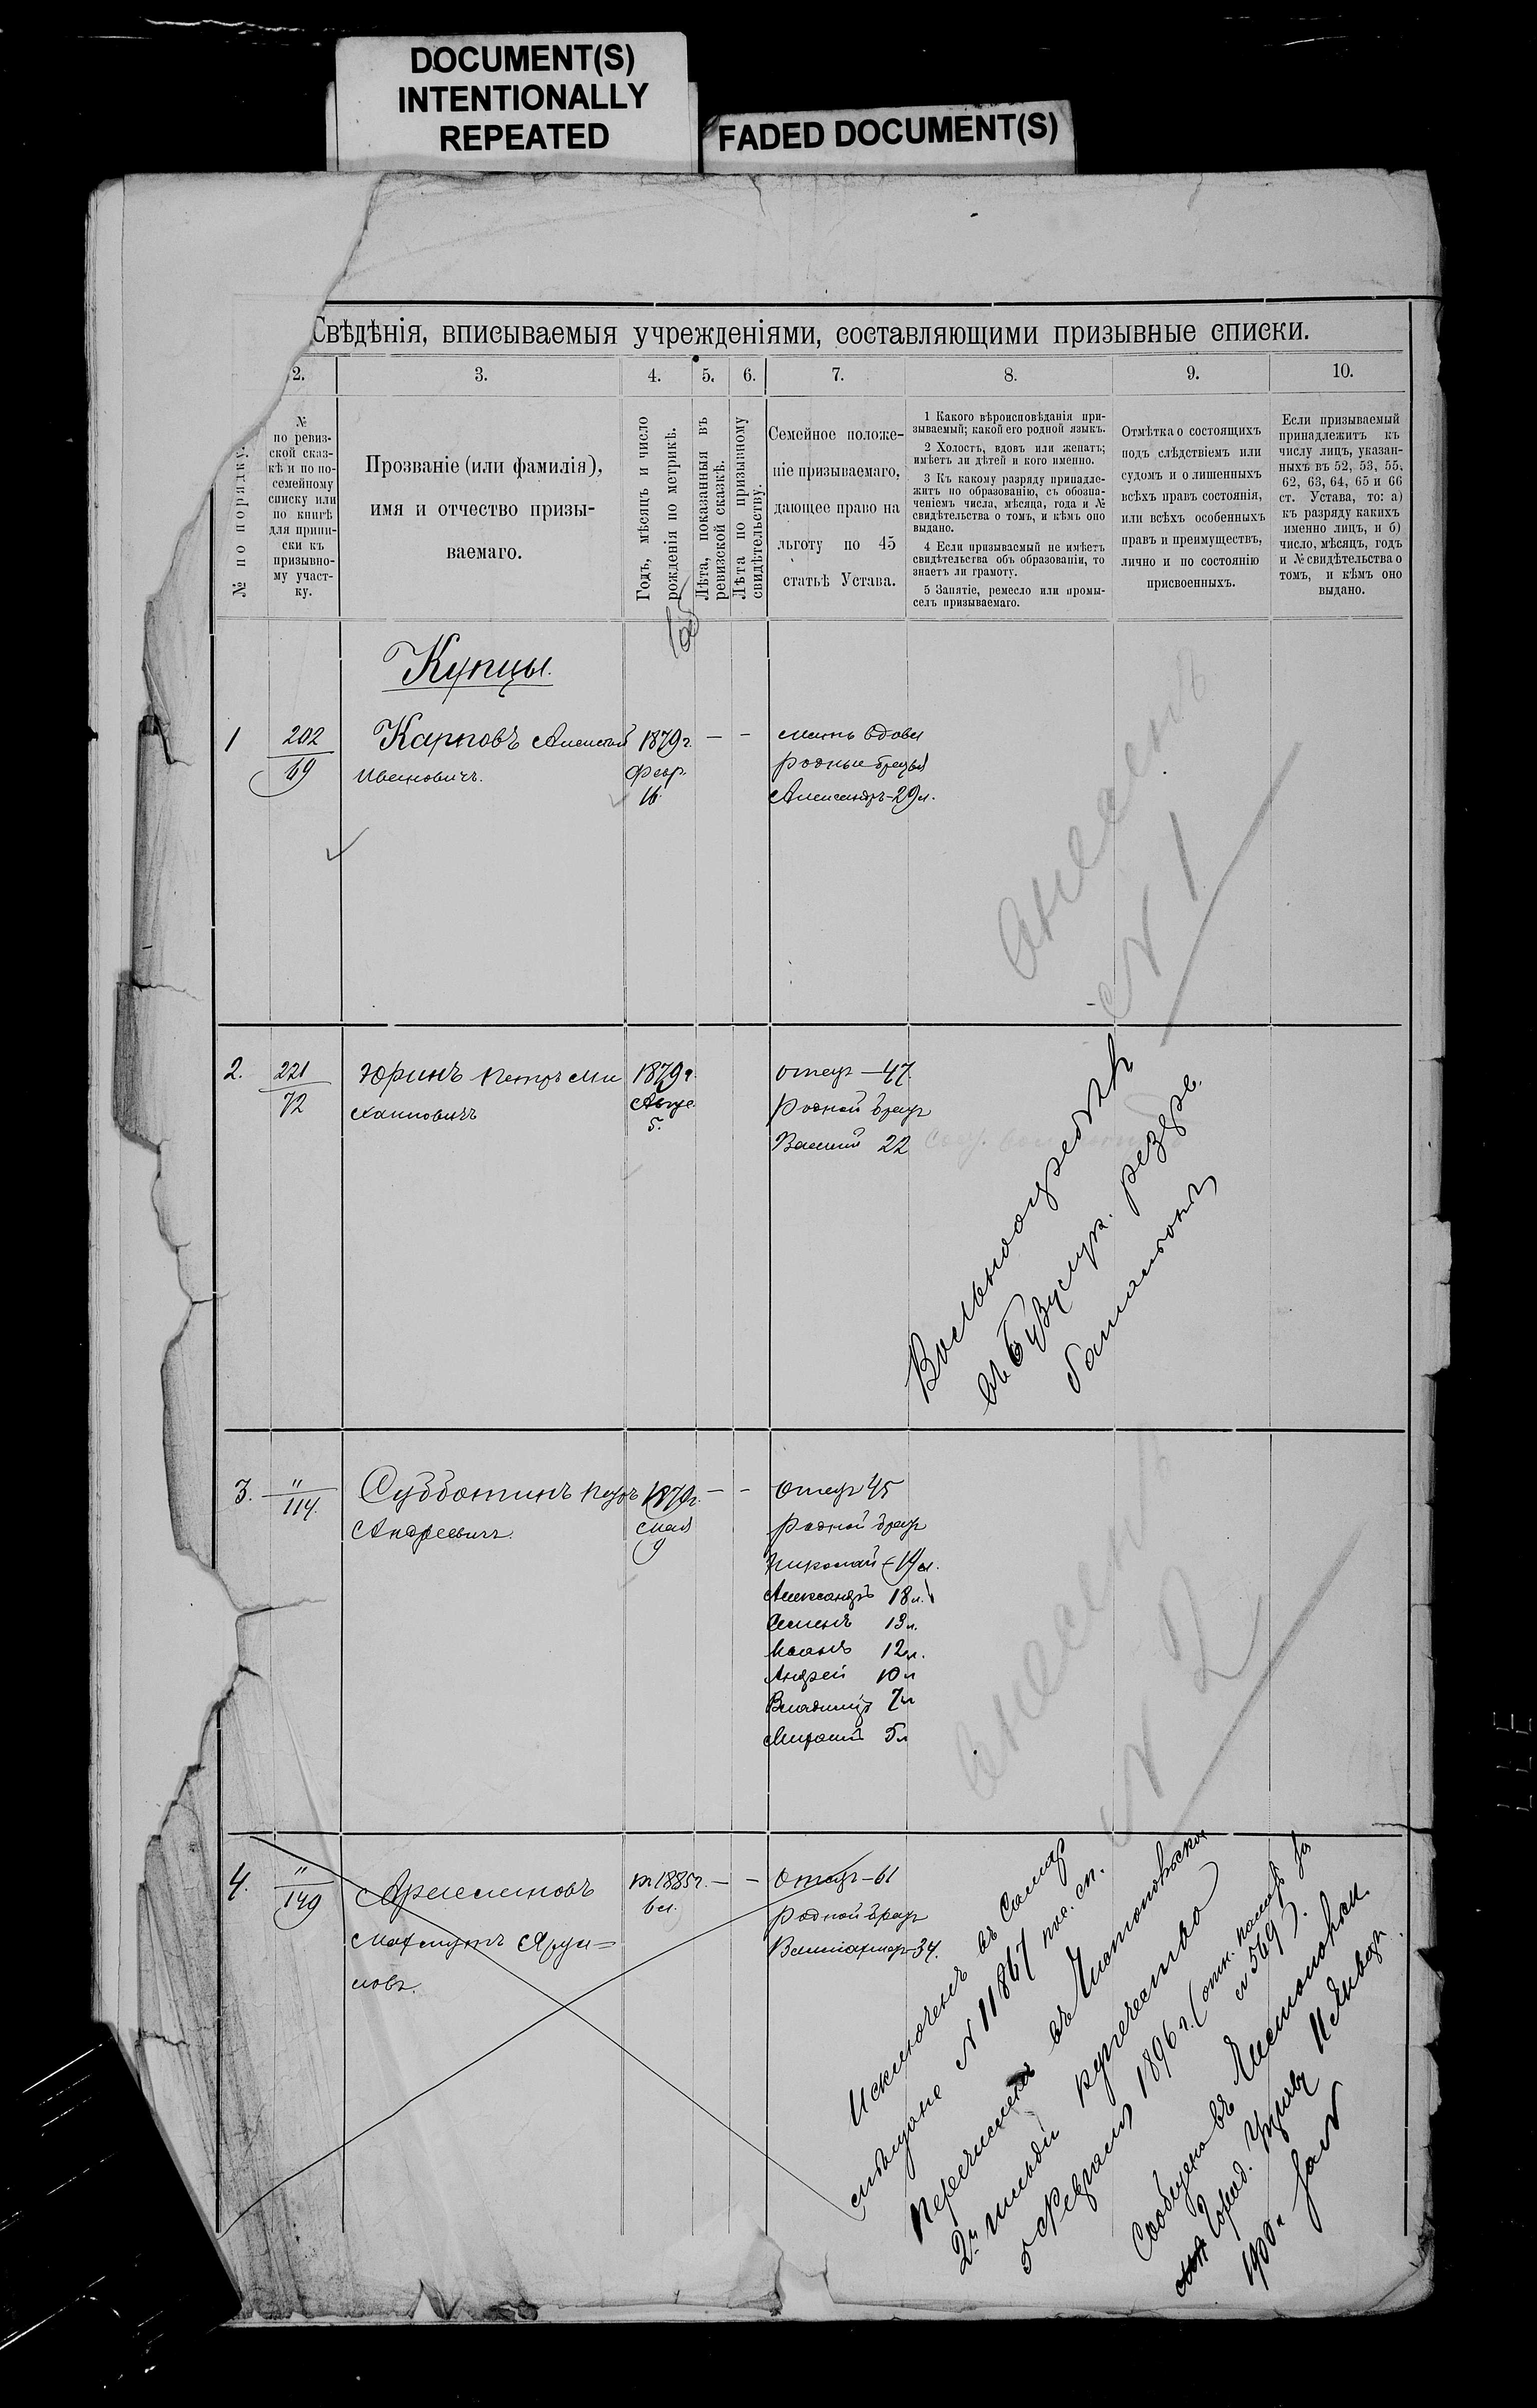 DOCUMENT(S)
INTENTIONALLY
REPEATED
FADED DOCUMENT(S)
Свѣдѣнія, вписываемыя учрежденіями, составляющими призывные списки.
2.
3.
4.
5.
6.
7.
8.
9.
10.
№ по порядку.
№
по ревиз-
ской сказ-
кѣ и по по-
семейному
списку или
по книгѣ
для припи-
ски къ
призывно-
му участ-
ку.
Прозваніе (или фамилія),
имя и отчество призы-
ваемаго.
Годъ, мѣсяцъ и число
рожденія по метрикѣ.
Лѣта, показанныя въ
ревизской сказкѣ.
Лѣта по призывному
свидѣтельству.
Семейное положе-
ніе призываемаго,
дающее право на
льготу по 45
статьѣ Устава.
1 Какого вѣроисповѣданія при-
зываемый; какой его родной языкъ.
2 Холостъ, вдовъ или женатъ;
имѣетъ ли дѣтей и кого именно.
3 Къ какому разряду принадле-
житъ по образованію, съ обозна-
ченіемъ числа, мѣсяца, года и №
свидѣтельства о томъ, и кѣмъ оно
выдано.
4 Если призываемый не имѣетъ
свидѣтельства объ образованіи, то
знаетъ ли грамоту.
5 Занятіе, ремесло или промы-
селъ призываемаго.
Отмѣтка о состоящихъ
подъ слѣдствіемъ или
судомъ и о лишенныхъ
всѣхъ правъ состоянія,
или всѣхъ особенныхъ
правъ и преимуществъ,
лично и по состоянію
присвоенныхъ.
Если призываемый
принадлежитъ къ
числу лицъ, указан-
ныхъ въ 52, 53, 55,
62, 63, 64, 65 и 66
ст. Устава, то: а)
къ разряду какихъ
именно лицъ, и б)
число, мѣсяцъ, годъ
и № свидѣтельства о
томъ, и кѣмъ оно
выдано.
Купцы.
1
202
69
Карповъ Алексѣй
Ивановичъ.
1879 г.
Февр.
16.
— —
мать вдова
родные братья
Александръ-29 л.
внесенъ
№ 1
2.
221
72
Юринъ Петръ Ми
хайловичъ
1879 г.
Авгус.
5.
отецъ — 47.
Родной братъ
Василій 22
Вольноопредѣл.
въ Бузулук. резерв.
баталіонѣ
3.
"
114.
Субботинъ Петръ
Андреевичъ.
1879 г.
Мая
9
— —
отецъ 45
родной братъ
Николай 14 л.
Александръ 18 л.
Семенъ 13 л.
Иванъ 12 л.
Андрей 10 л
Владиміръ 7 л
5 л
внесенъ
№ 2
4.
"
149
1885 г.
6 л.
— —
Отецъ-61
родной братъ
34.
Исключенъ въ Самар
№ 11867
Перечисленъ въ Чистопольское
2й гильдіи купечество
5 Февраля 1896 г. (отн. палаты за
№ 569).
Сообщено въ Чистопольск.
Город. Управу 11 Января
1900 г. за №